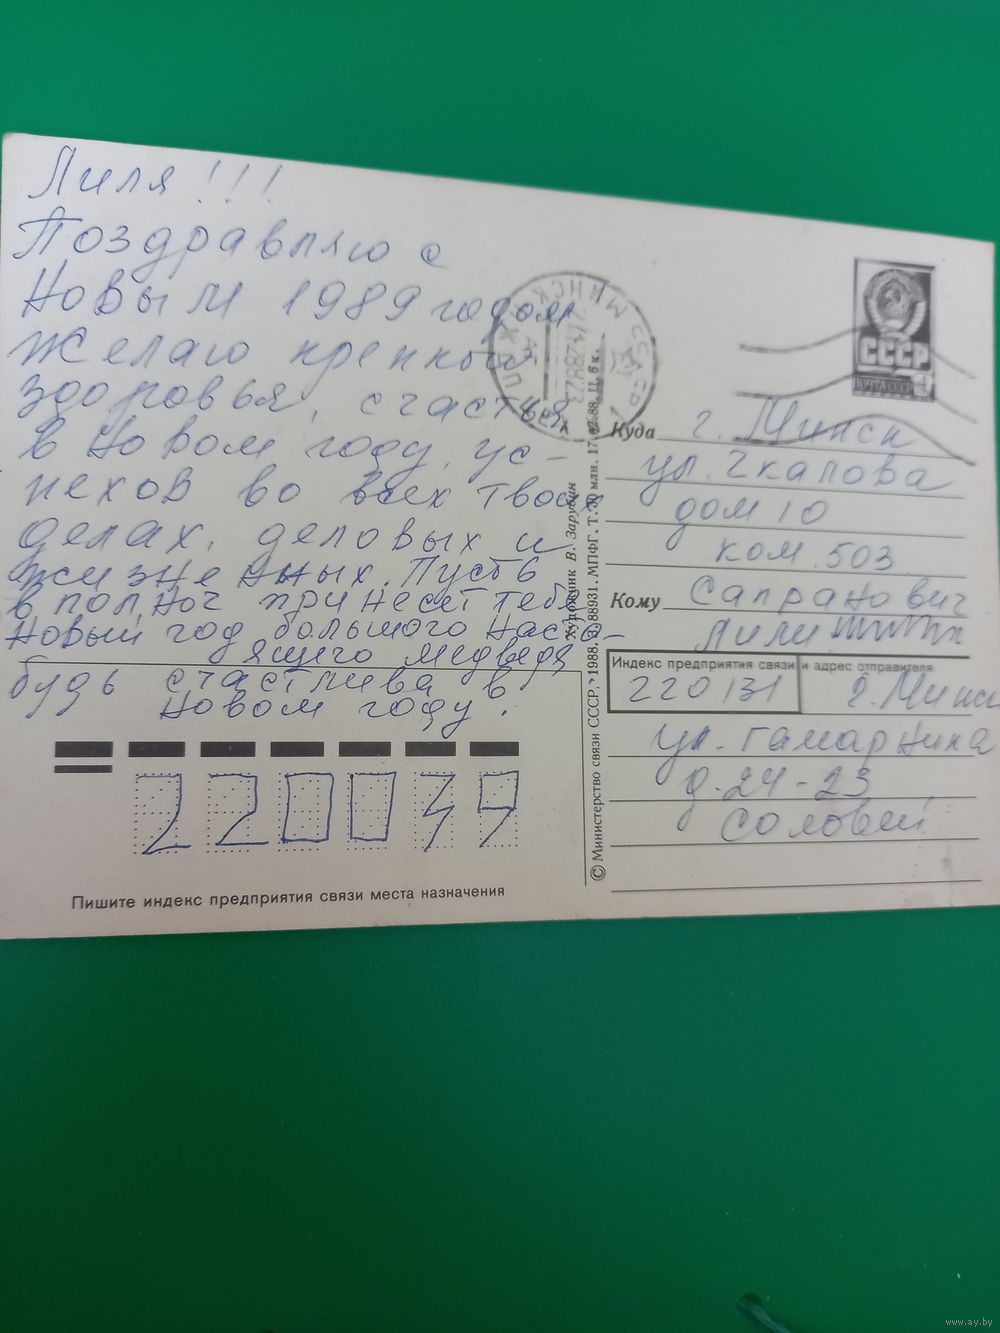 Лиля!!!
Поздравляю с
Новым 1989 годом
Желаю крепкого
здоровья, счастья
в Новом году, ус-
пехов во всех твоих
делах, деловых и
жизненных. Пусть
в полноч принесет тебе
новый год большого насто-
ящего медведя
будь счастлива в
Новом году.
220049
Пишите индекс предприятия связи места назначения
© Министерство связи СССР, 1988. З. 88931. МПФГ. Т. млн. 17.02.88. Ц. 6 к.
Художник В. Зарубин
МИНСК
СССР
ПОЧТА СССР
4
Куда г. Минск
ул. Чкалова
дом 10
ком. 503
Кому Сапранович
Лили
Индекс предприятия связи и адрес отправителя
220131 г. Минск
ул. Гамарника
д. 24-23
Соловей
www.ay.by